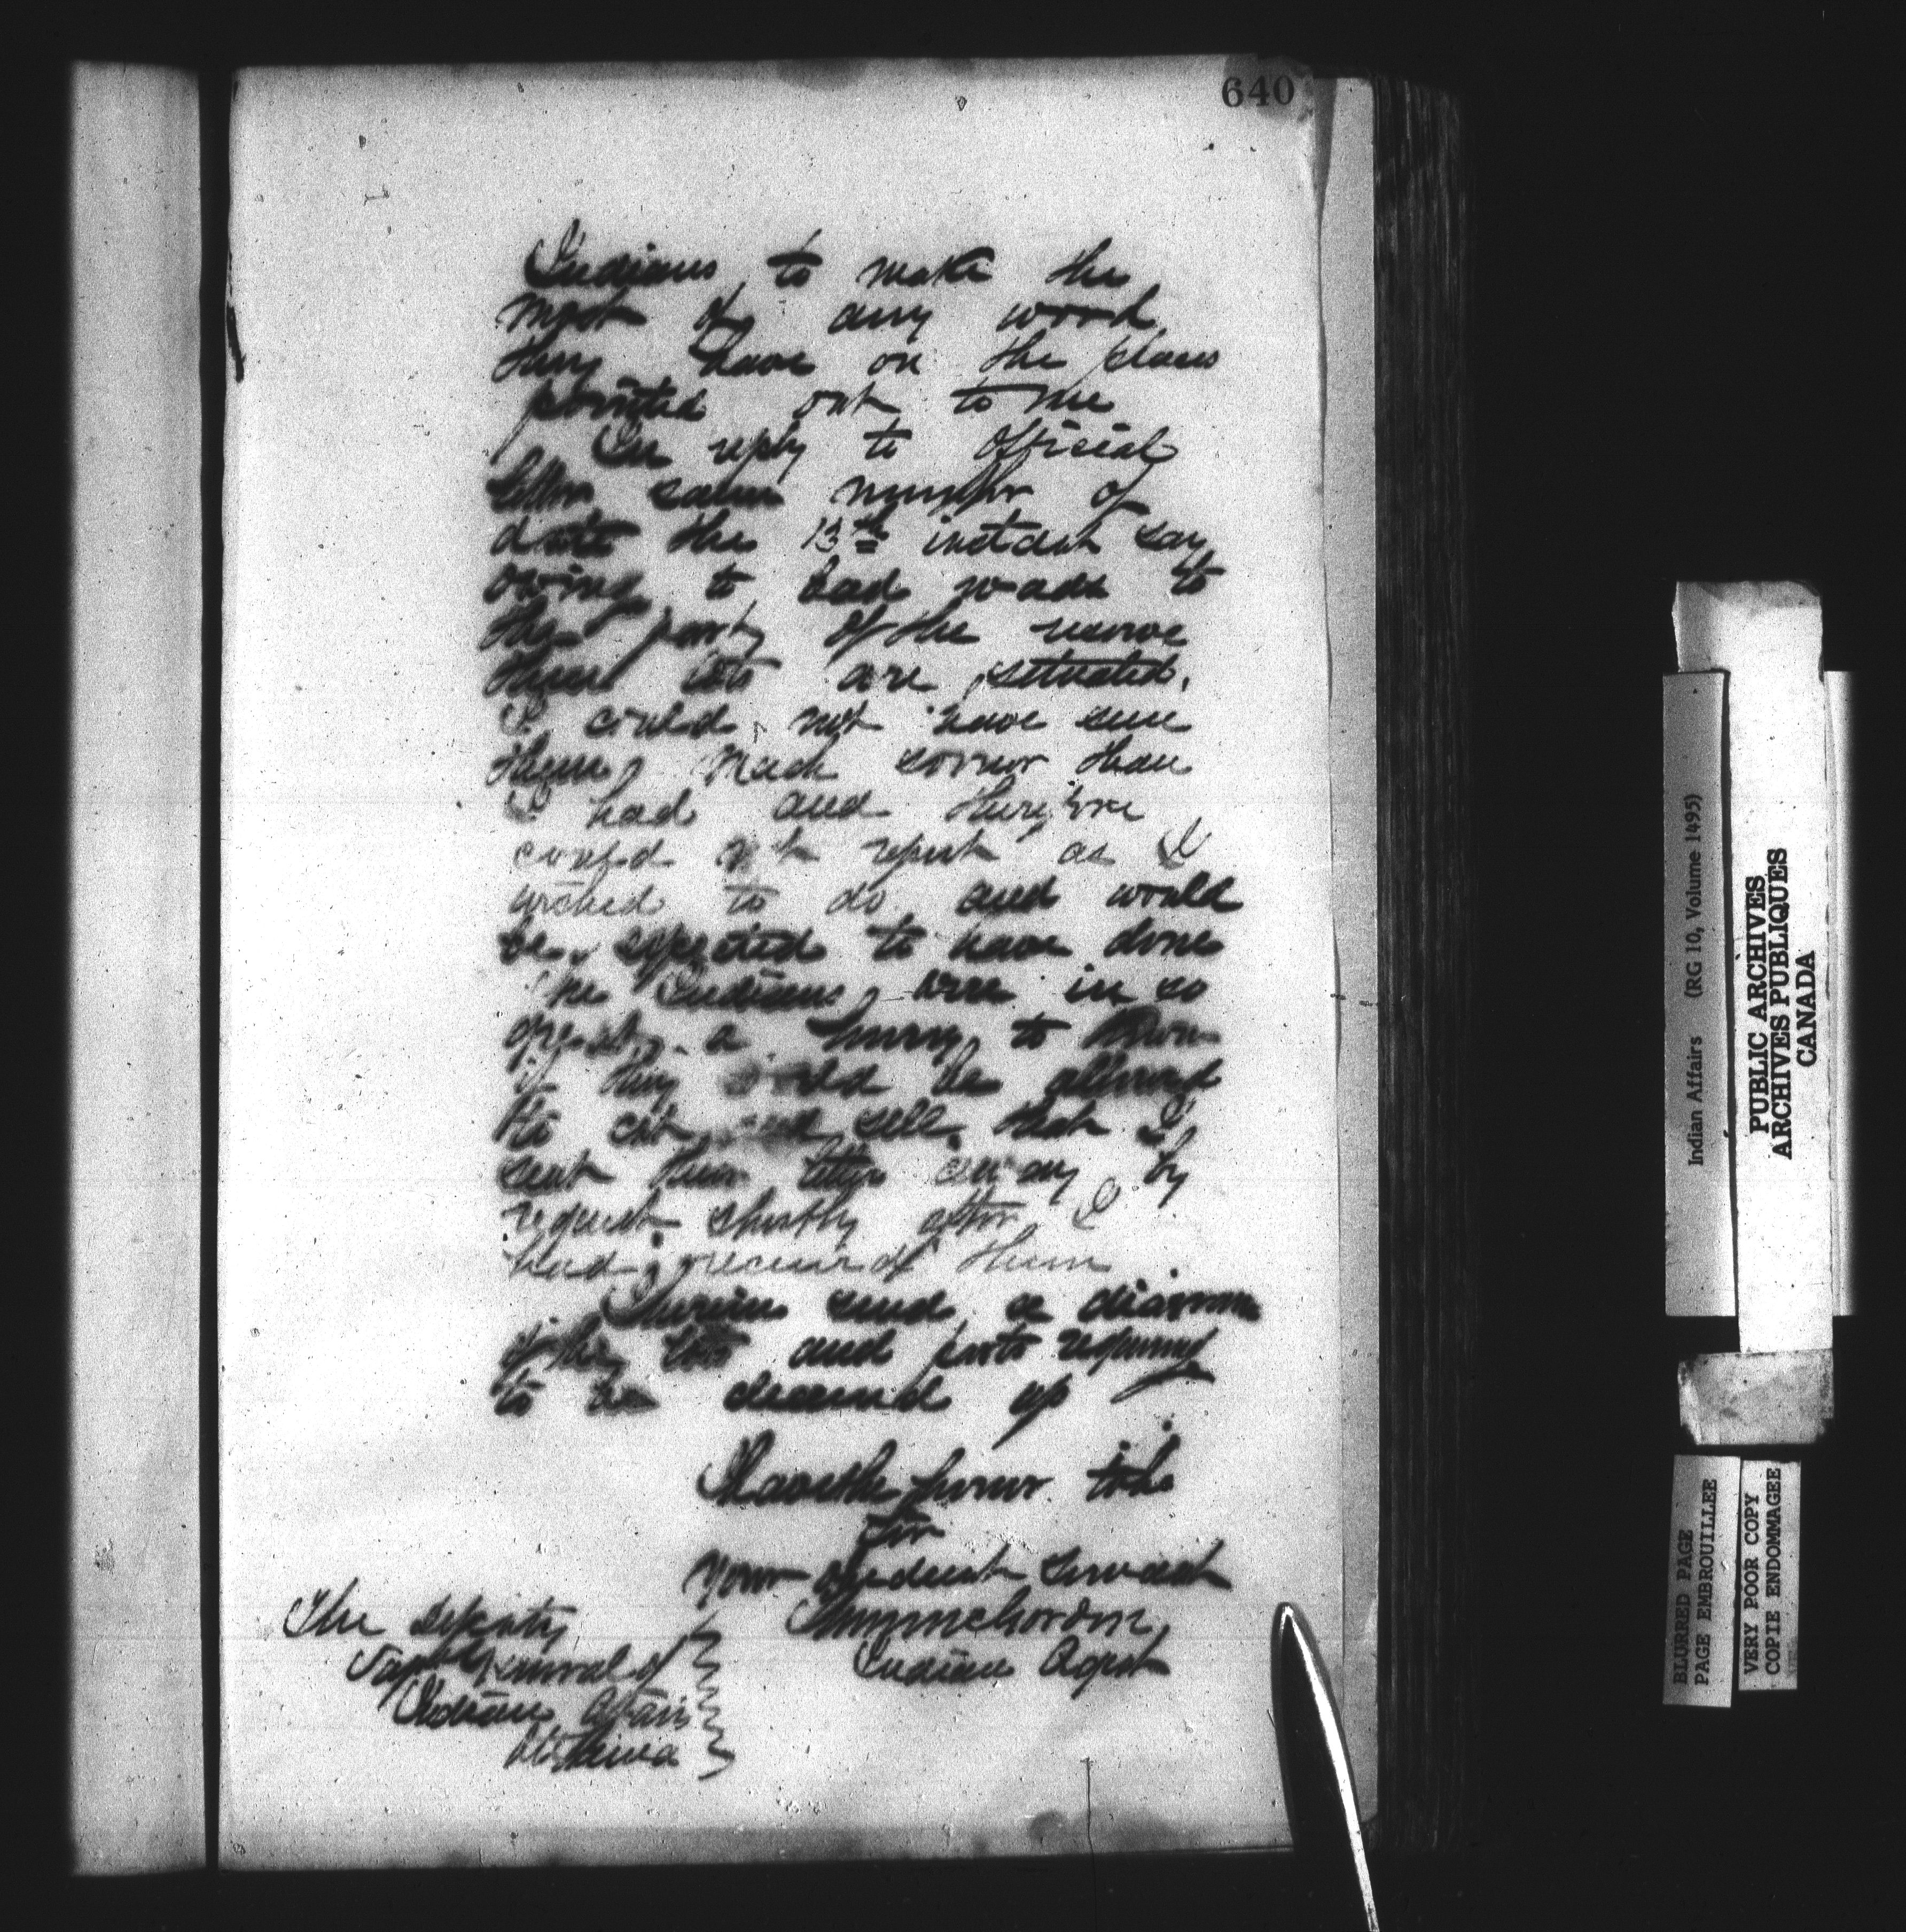 640
Indians to make the
most of any wood
they have on the places
pointed out to me
In reply to official
letter same number of
date the 13th instant say
owing to bad roads to
the part of the reserve
these lots are situated,
I could not have seen
them much sooner than
I had and therefore
could not report as I
wished to do and would
be expected to have done
The Indians were in so
great a hurry to know
if they would be allowed
to cut and sell that I
sent their letter away by
request shortly after I
had received them
Herein send a diagram
of the lots and parts requiring
to be cleaned up
I have the honor to be
Sir
Your obedient Servant
Indian Agent
The Deputy
Supt General of
Indian Affairs
Ottawa
Indian Affairs (RG 10, Volume 1495)
PUBLIC ARCHIVES
ARCHIVES PUBLIQUES
CANADA
BLURRED PAGE
PAGE EMBROUILLEE
VERY POOR COPY
COPIE ENDOMMAGEE